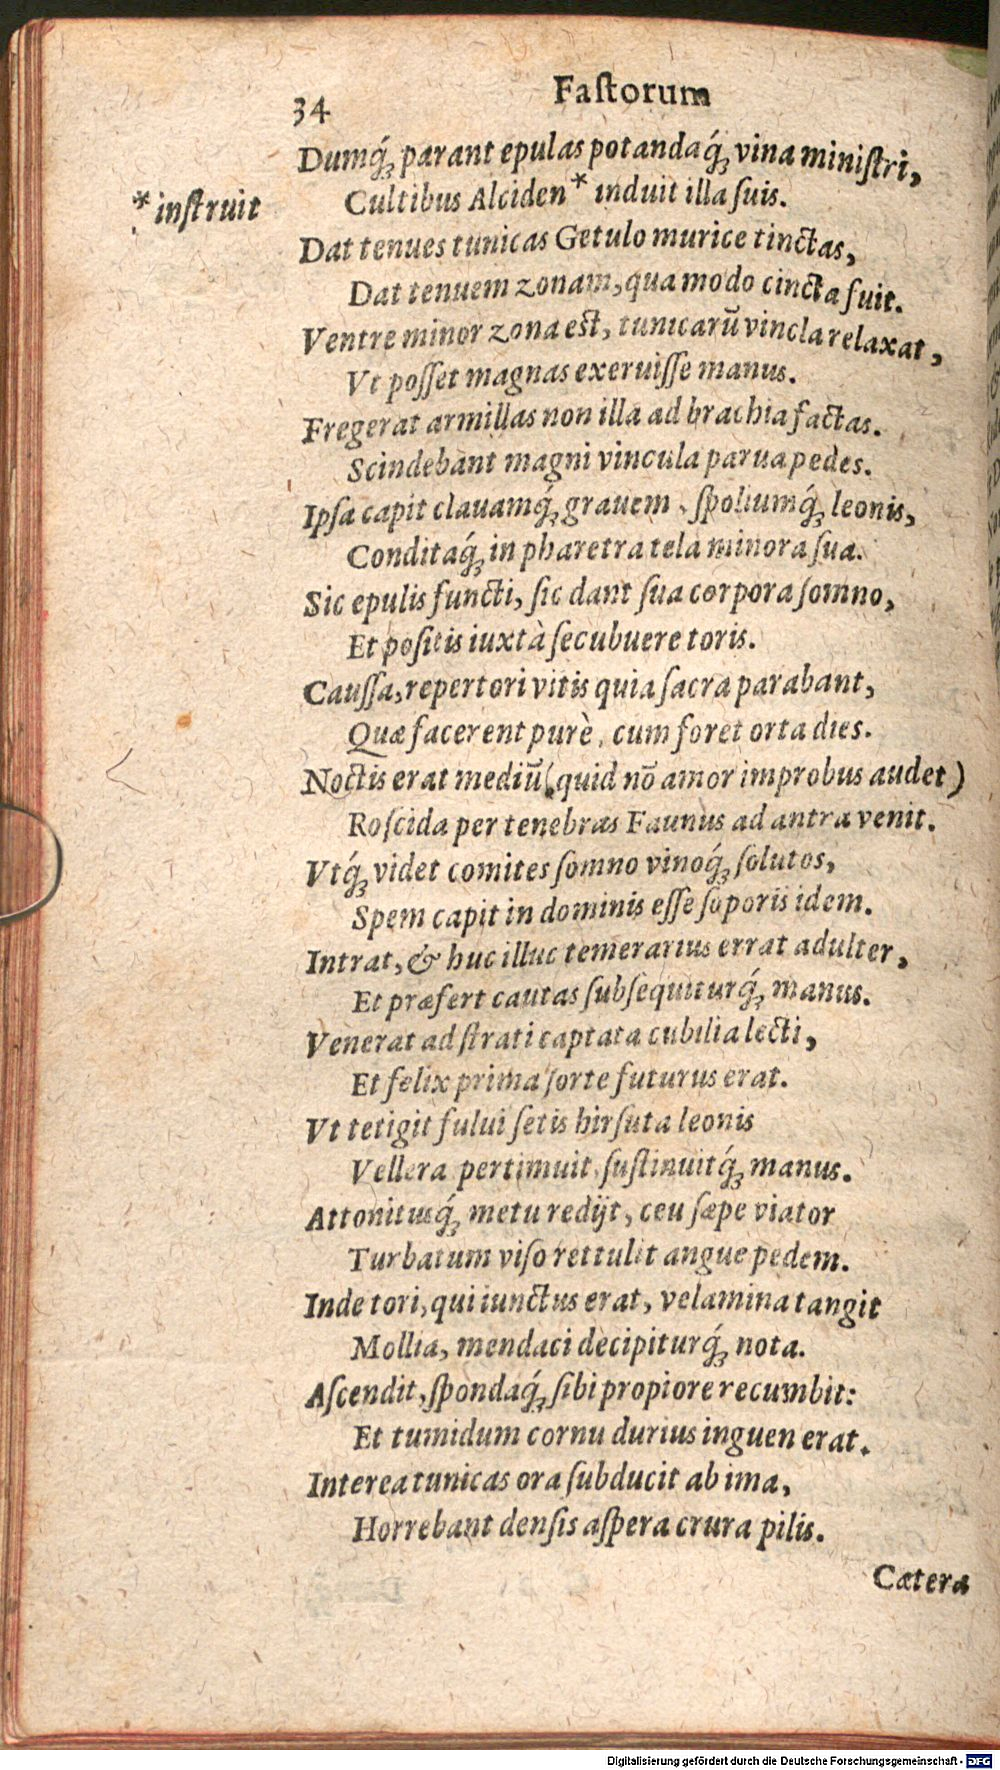 34 Faſtorum
Dumq́ꝫ parant epulas potandaq́ꝫ vina miniſtri,
Cultibus Alciden * induit illa ſuis.
* inſtruit
Dat tenues tunicas Getulo murice tinctas,
Dat tenuem zonam, qua modo cincta fuit.
Ventre minor zona eſt, tunicarū vincla relaxat,
Vt poſſet magnas exeruiſſe manus.
Fregerat armillas non illa ad brachia factas.
Scindebant magni vincula parua pedes.
Ipſa capit clauamq́ꝫ grauem, ſpoliumq́ꝫ leonis,
Conditaq́ꝫ in pharetra tela minora ſua.
Sic epulis functi, ſic dant ſua corpora ſomno,
Et poſitis iuxtà ſecubuere toris.
Cauſſa, repertori vitis quia ſacra parabant,
Quæ facerent purè, cum foret orta dies.
Noctis erat mediū (quid nō amor improbus audet)
Roſcida per tenebras Faunus ad antra venit.
Vtq́ꝫ videt comites ſomno vinoq́ꝫ ſolutos,
Spem capit in dominis eſſe ſoporis idem.
Intrat, & huc illuc temerarius errat adulter,
Et præfert cautas ſubſequiturq́ꝫ manus.
Venerat ad ſtrati captata cubilia lecti,
Et felix prima ſorte futurus erat.
Vt tetigit fului ſetis hirſuta leonis
Vellera pertimuit, ſuſtinuitq́ꝫ manus.
Attonitusq́ꝫ metu redijt, ceu ſæpe viator
Turbatum viſo rettulit angue pedem.
Inde tori, qui iunctus erat, velamina tangit
Mollia, mendaci decipiturq́ꝫ nota.
Aſcendit, ſpondaq́ꝫ ſibi propiore recumbit:
Et tumidum cornu durius inguen erat.
Interea tunicas ora ſubducit ab ima,
Horrebant denſis aſpera crura pilis.
Cætera
Digitalisierung gefördert durch die Deutsche Forschungsgemeinschaft - DFG